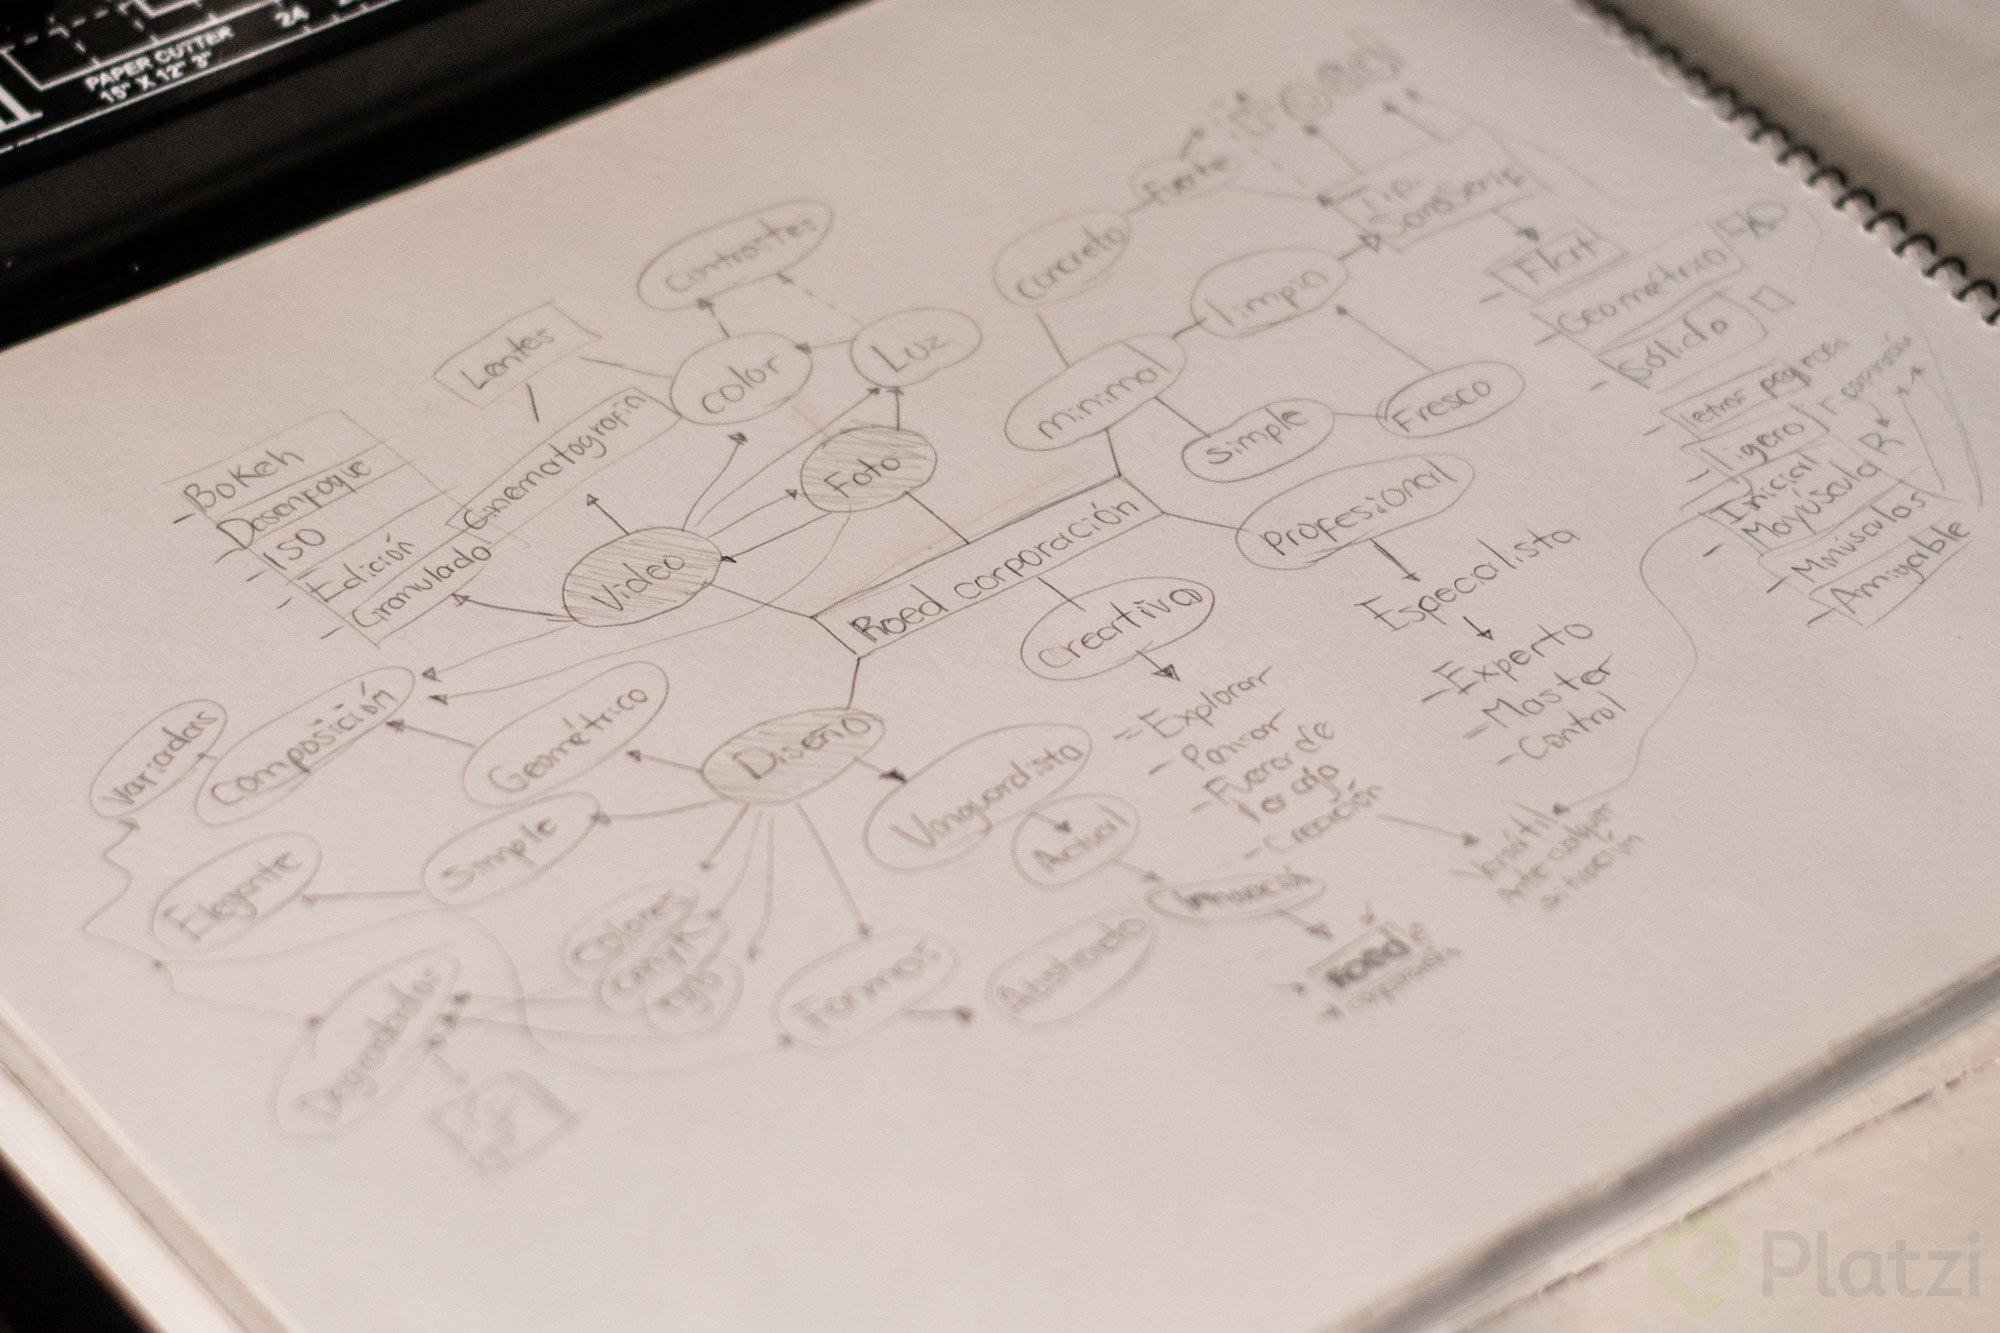 24
PAPER CUTTER
15" X 12" 3"
Contrastes
Lentes
Color
Luz
Cinematografía
Foto
Video
BoKeh
Desenfoque
ISO
Edición
Granulado
Concreto
fuerte
Tip.
Sans Serif
limpia
minimal
Simple
Fresco
Flat
Geométrico
Sólido
letras
ligero
Inicial
Mayúscula R
Minúsculas
Amigable
Roed corporación
Profesional
Especialista
- Experto
- Master
- Control
Creativa
- Explorar
- Pensar
- Fuera de
la caja
- Creación
Versátil
Ante cualquier
situación
Diseño
Vanguardista
Actual
ROED
Variadas
Composición
Geométrico
Simple
Elegante
Degradados
Colores
CMYK
ryb
Formas
Abstracto
Platzi